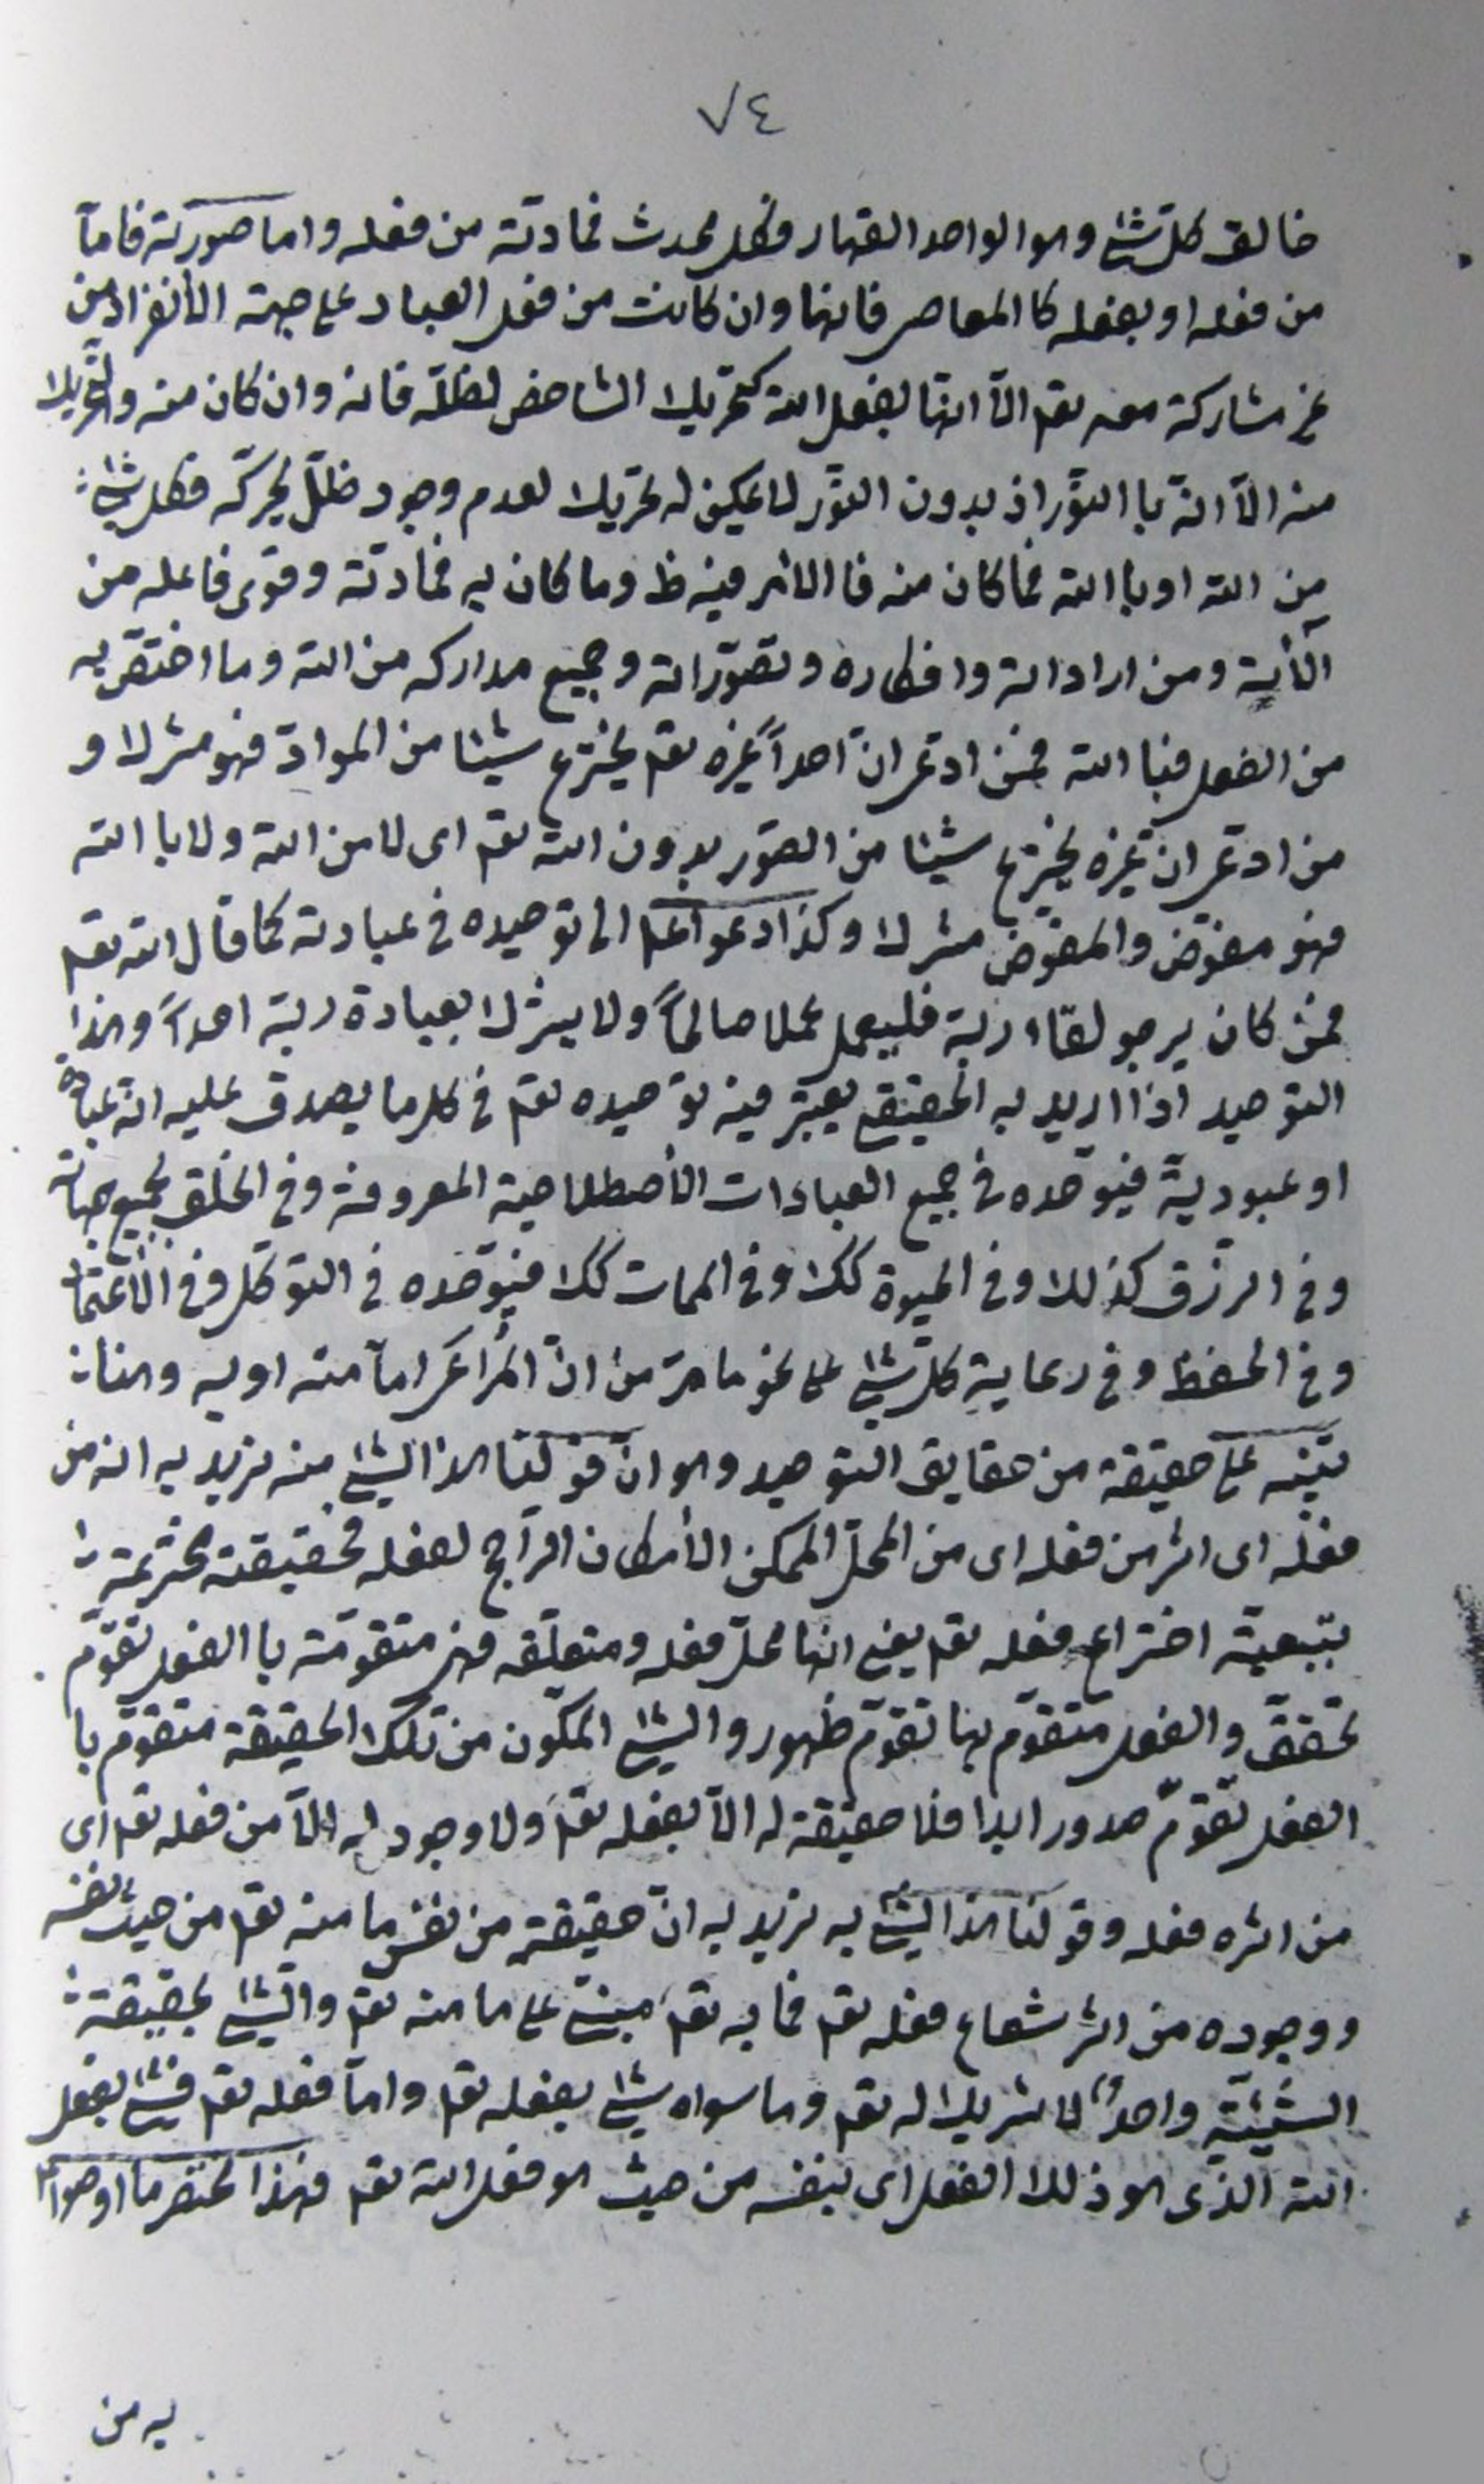 ٧٤
خالق كلّ شئ وهو الواحد القهار فكل محدث فمادته من فعله واما صورته فامّا
من فعله او بفعله كا المعاصى فانها وان كانت من فعل العباد على جهة الأنفراد من
غير مشاركة معه تعم الّا انها بفعل الله كتحريك الشاخص لظلّه فانه وان كان منه والتحريك
منه الّا انّه با النّور اذ بدون النّور لا يمكن له تحريك لعدم وجود ظلّ يحركّه فكل شئ
من الله او با الله فما كان منه فا الامر فيه ظ وما كان به فمادته وقوى فاعله من
الأنية ومن اراداته وافكاره وتصوّراته وجميع مداركه من الله وما اختصّ به
من الفعل فبا الله فمن ادعى انّ احداً غيره تعم يخترع شيئا من الموادّ فهو مشرك و
من ادعى ان غيره يخترع شيئا من الصّور بدون الله تعم اى لا من الله ولا با الله
فهو مفوّض والمفوّض مشرك وكذا دعوا عم الى توحيده فى عبادته كما قال الله تعم
فمن كان يرجو لقاء ربّه فليعمل عملا صالحاً ولا يشرك بعبادة ربّه احداً وهذا
التوحيد اذا اريد به الحقيقى يعتبر فيه توحيده تعم فى كل ما يصدق عليه انّه عبادة
او عبودية فيوحّده فى جميع العبادات الأصطلاحية المعروفة وفى الخلق بجميع جهاته
وفى الرزق كذلك وفى الحيوة كك وفى الممات كك فيوحّده فى التوكّل وفى الأعتماد
وفى الحفظ وفى رعاية كلّ شئ على نحو ما مرّ من انّ المراعى امّا منه او به وهنا
تنبيه على حقيقة من حقايق التوحيد وهو انّ قولنا هذا الشئ منه نريد به انه من
فعله اى اثر من فعله اى من المحلّ الممكن الأمكان الراجح لفعله فحقيقته مخترعة
بتبعيّة اختراع فعله تعم يعنى انها محلّ فعله ومتعلّقه فهى متقوّمة با الفعل تقوّم
تحقق والفعل متقوّم بها تقوّم ظهور والشئ المكّون من تلك الحقيقة متقوّم با
الفعل تقوّم صدور ابدا فلا حقيقة له الّا بفعله تعم ولا وجود له الّا من فعله تعم اى
من اثره فعله وقولنا هذا الشئ به نريد به انّ حقيقته من نفس ما منه تعم من حيث نفسه
ووجوده من اثر شعاع فعله تعم فما به تعم مبنىّ على ما منه تعم والشئ بحقيقة
الشيئيّة واحد لا شريك له تعم وما سواه شئ بفعله تعم وامّا فعله تعم فشئ بفعل
الله الذى هو ذلك الفعل اى بنفسه من حيث هو فعل الله تعم فهذا مختصر ما اوصوا عم
به من